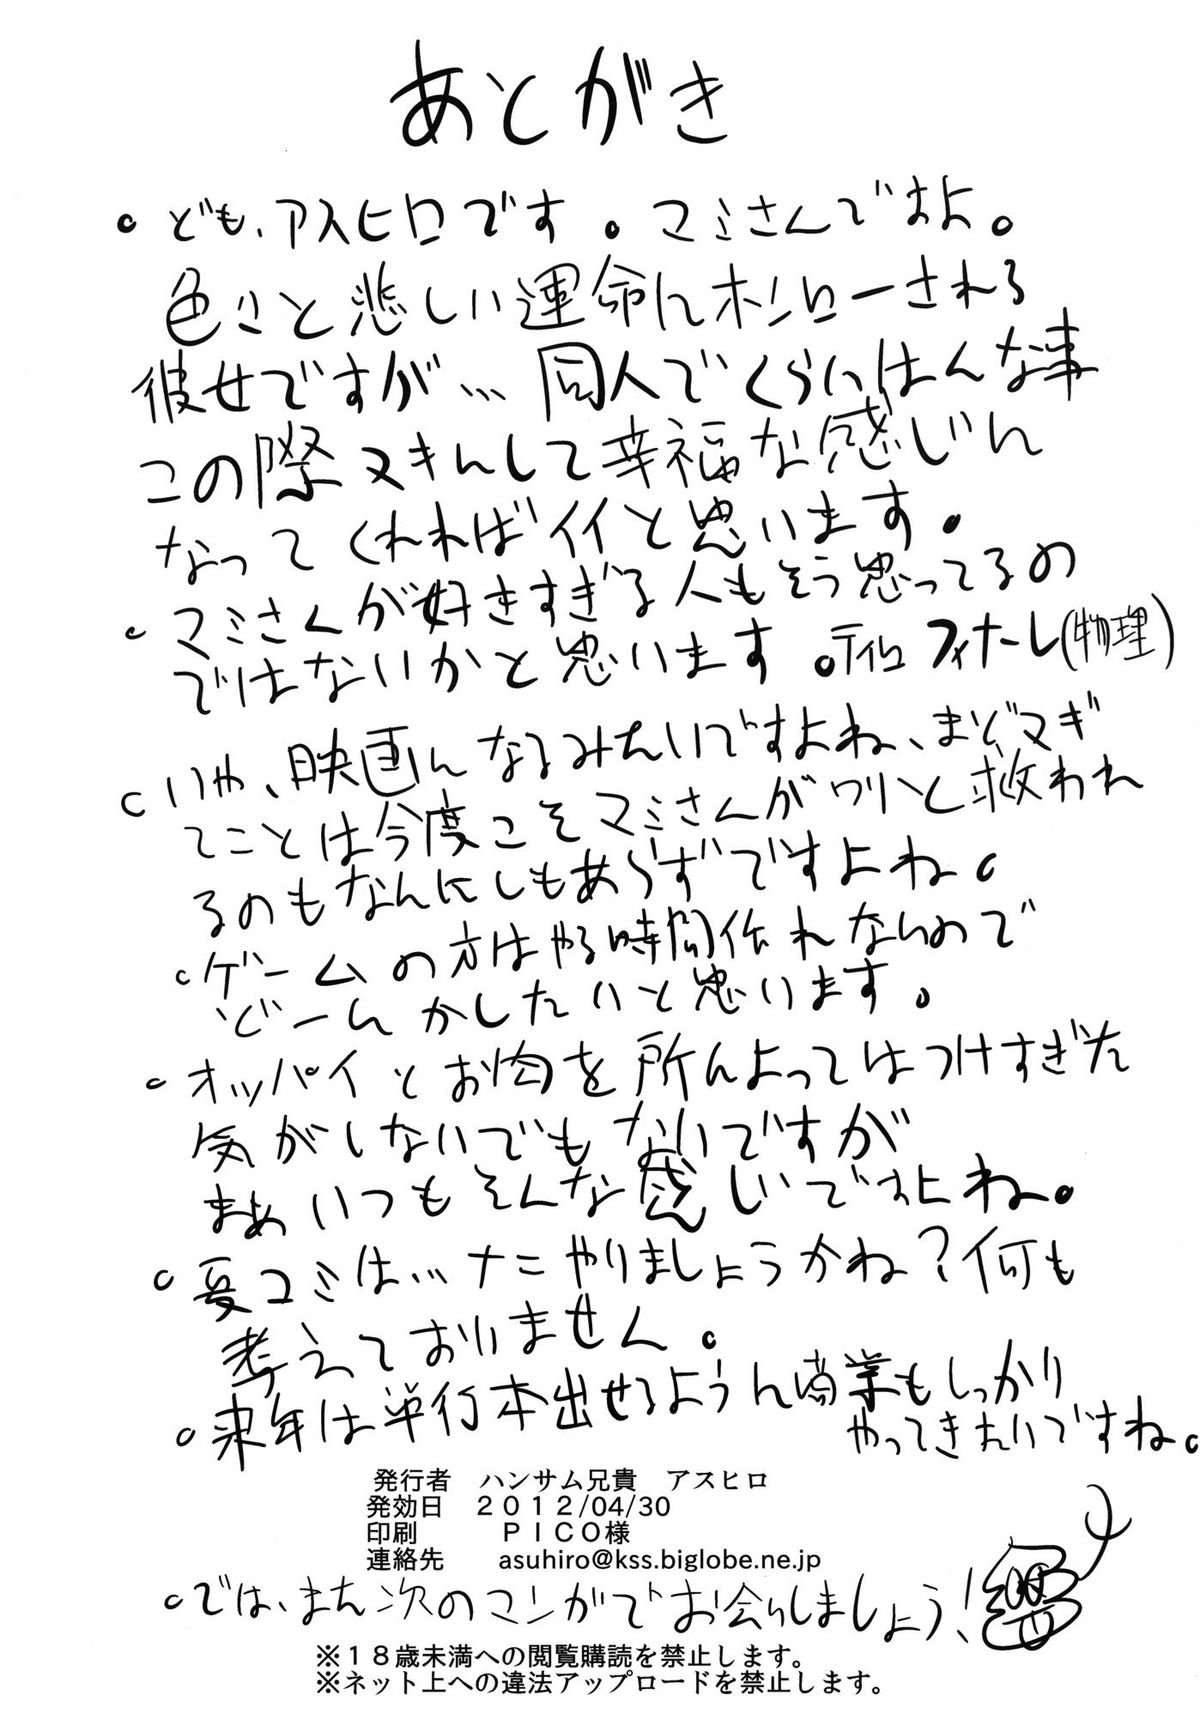 あとがき
。ども、アスヒロです。マミさんですよ。
色々と悲しい運命にホンローされる
彼女ですが… 同人でくらいはんな事
この際ヌキんして幸福な感じに
なってくれればイイと思います。
。マミさんが好きすぎる人もそう思ってるの
ではないかと思います。ティロ フィナーレ(物理)
。いや、映画になるみたいですよね、まどマギ
てことは今度こそマミさんがワリと救われ
るのもなんにしもあらずですよね。
。ゲームの方はやる時間作れないので
どーにかしたいと思います。
。オッパイとお肉を所によってはつけすぎた
気がしないでもないですが
まぁいつもそんな感じですよね。
。夏コミは…ナニやりましょうかね?何も
考えておりません。
。来年は単行本出せるように商業もしっかり
やってきたいですね。
発行者 ハンサム兄貴 アスヒロ
発効日 2012/04/30
印刷 PICO様
連絡先 asuhiro@kss.biglobe.ne.jp
。では、また次のマンガでお会いしましょう!
※18歳未満への閲覧購読を禁止します。
※ネット上への違法アップロードを禁止します。